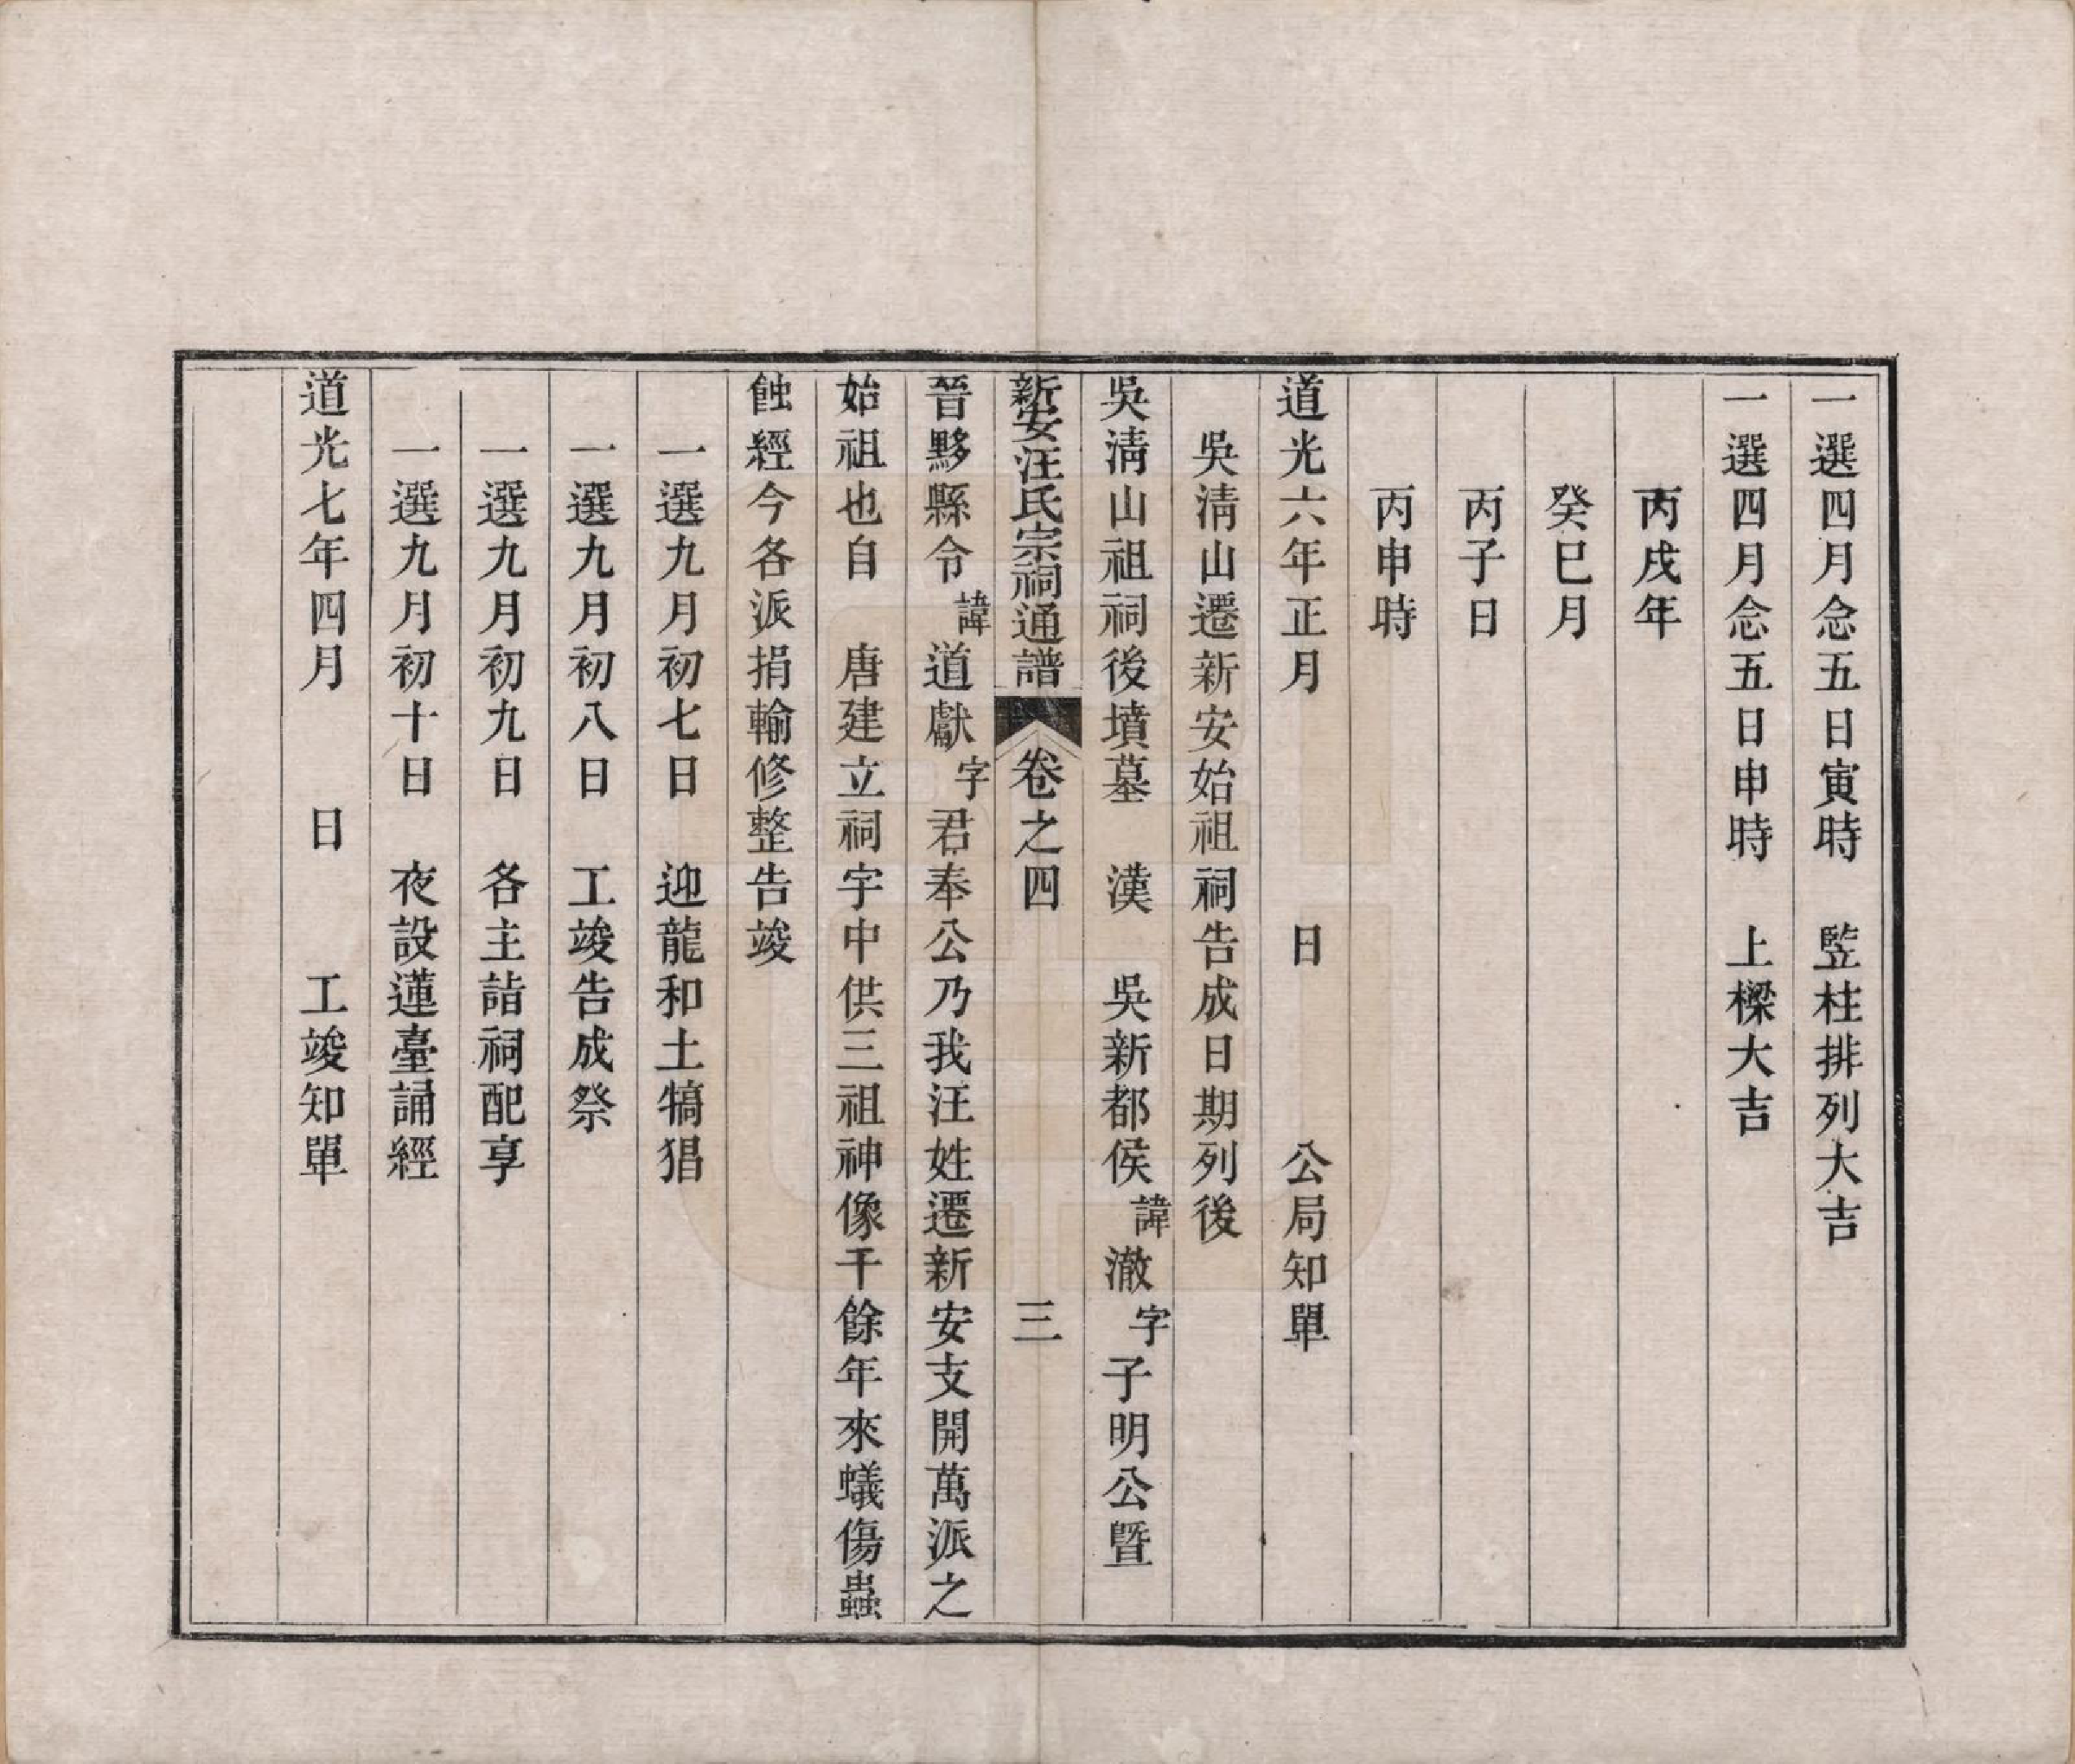 一選四月念五日寅時　竪柱排列大吉
一選四月念五日申時　上樑大吉
丙戌年
癸巳月
丙子日
丙申時
道光六年正月　　　　日　　　公局知單
吳淸山遷新安始祖祠告成日期列後
吳淸山祖祠後墳墓　漢　吳新都侯諱澈字子明公暨
新安汪氏宗祠通譜　卷之四　三
晉黟縣令諱道獻字君奉公乃我汪姓遷新安支開萬派之
始祖也自　唐建立祠宇中供三祖神像千餘年來蟻傷蟲
蝕經今各派捐輸修整告竣
一選九月初七日　迎龍和土犒猖
一選九月初八日　工竣告成祭
一選九月初九日　各主詣祠配享
一選九月初十日　夜設蓮臺誦經
道光七年四月　　日　　工竣知單